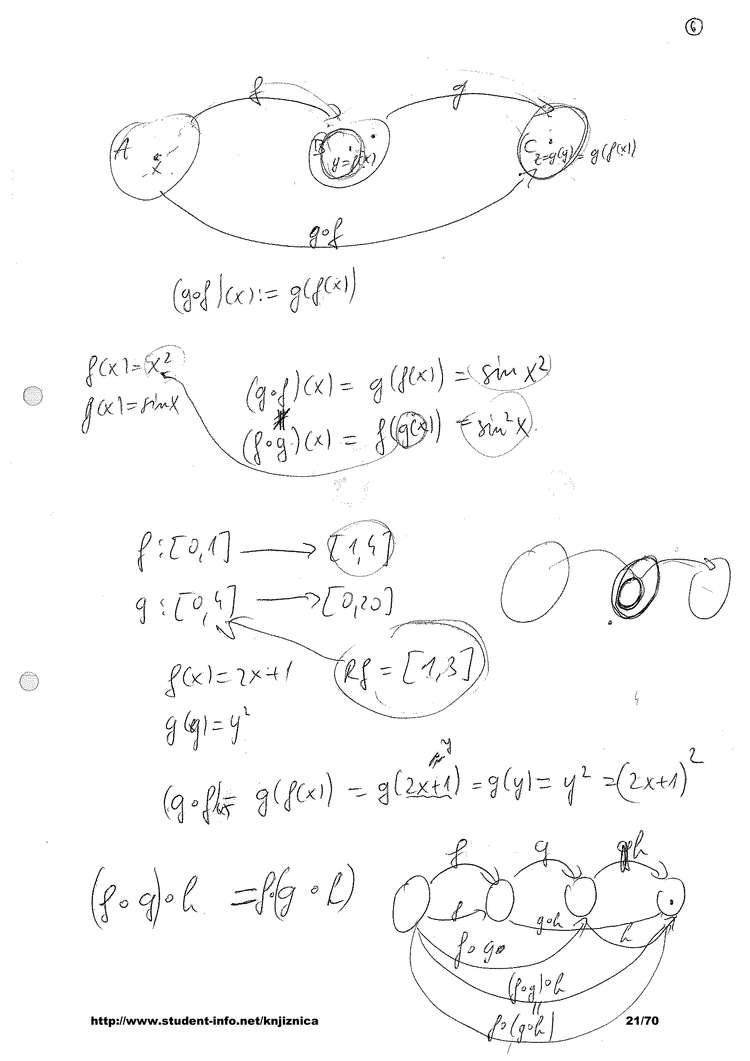 6
f
g
A
x
B
y=f(x)
C
z=g(y) = g(f(x))
g∘f
(g∘f)(x):= g(f(x))
f(x)=x²
g(x)=sinx
(g∘f)(x) = g(f(x)) = sin x²
(f∘g)(x) = f(g(x)) = sin²x.
f:[0,1] → [1,4]
g:[0,4] → [0,20]
f(x)=2x+1
Rf = [1,3]
g(y)=y²
y
(g∘f)(x)= g(f(x)) = g(2x+1) = g(y)= y² =(2x+1)²
(f∘g)∘h = f∘(g∘h)
f
g
h
f
g∘h
h
f∘g
(f∘g)∘h
=
f∘(g∘h)
http://www.student-info.net/knjiznica
21/70